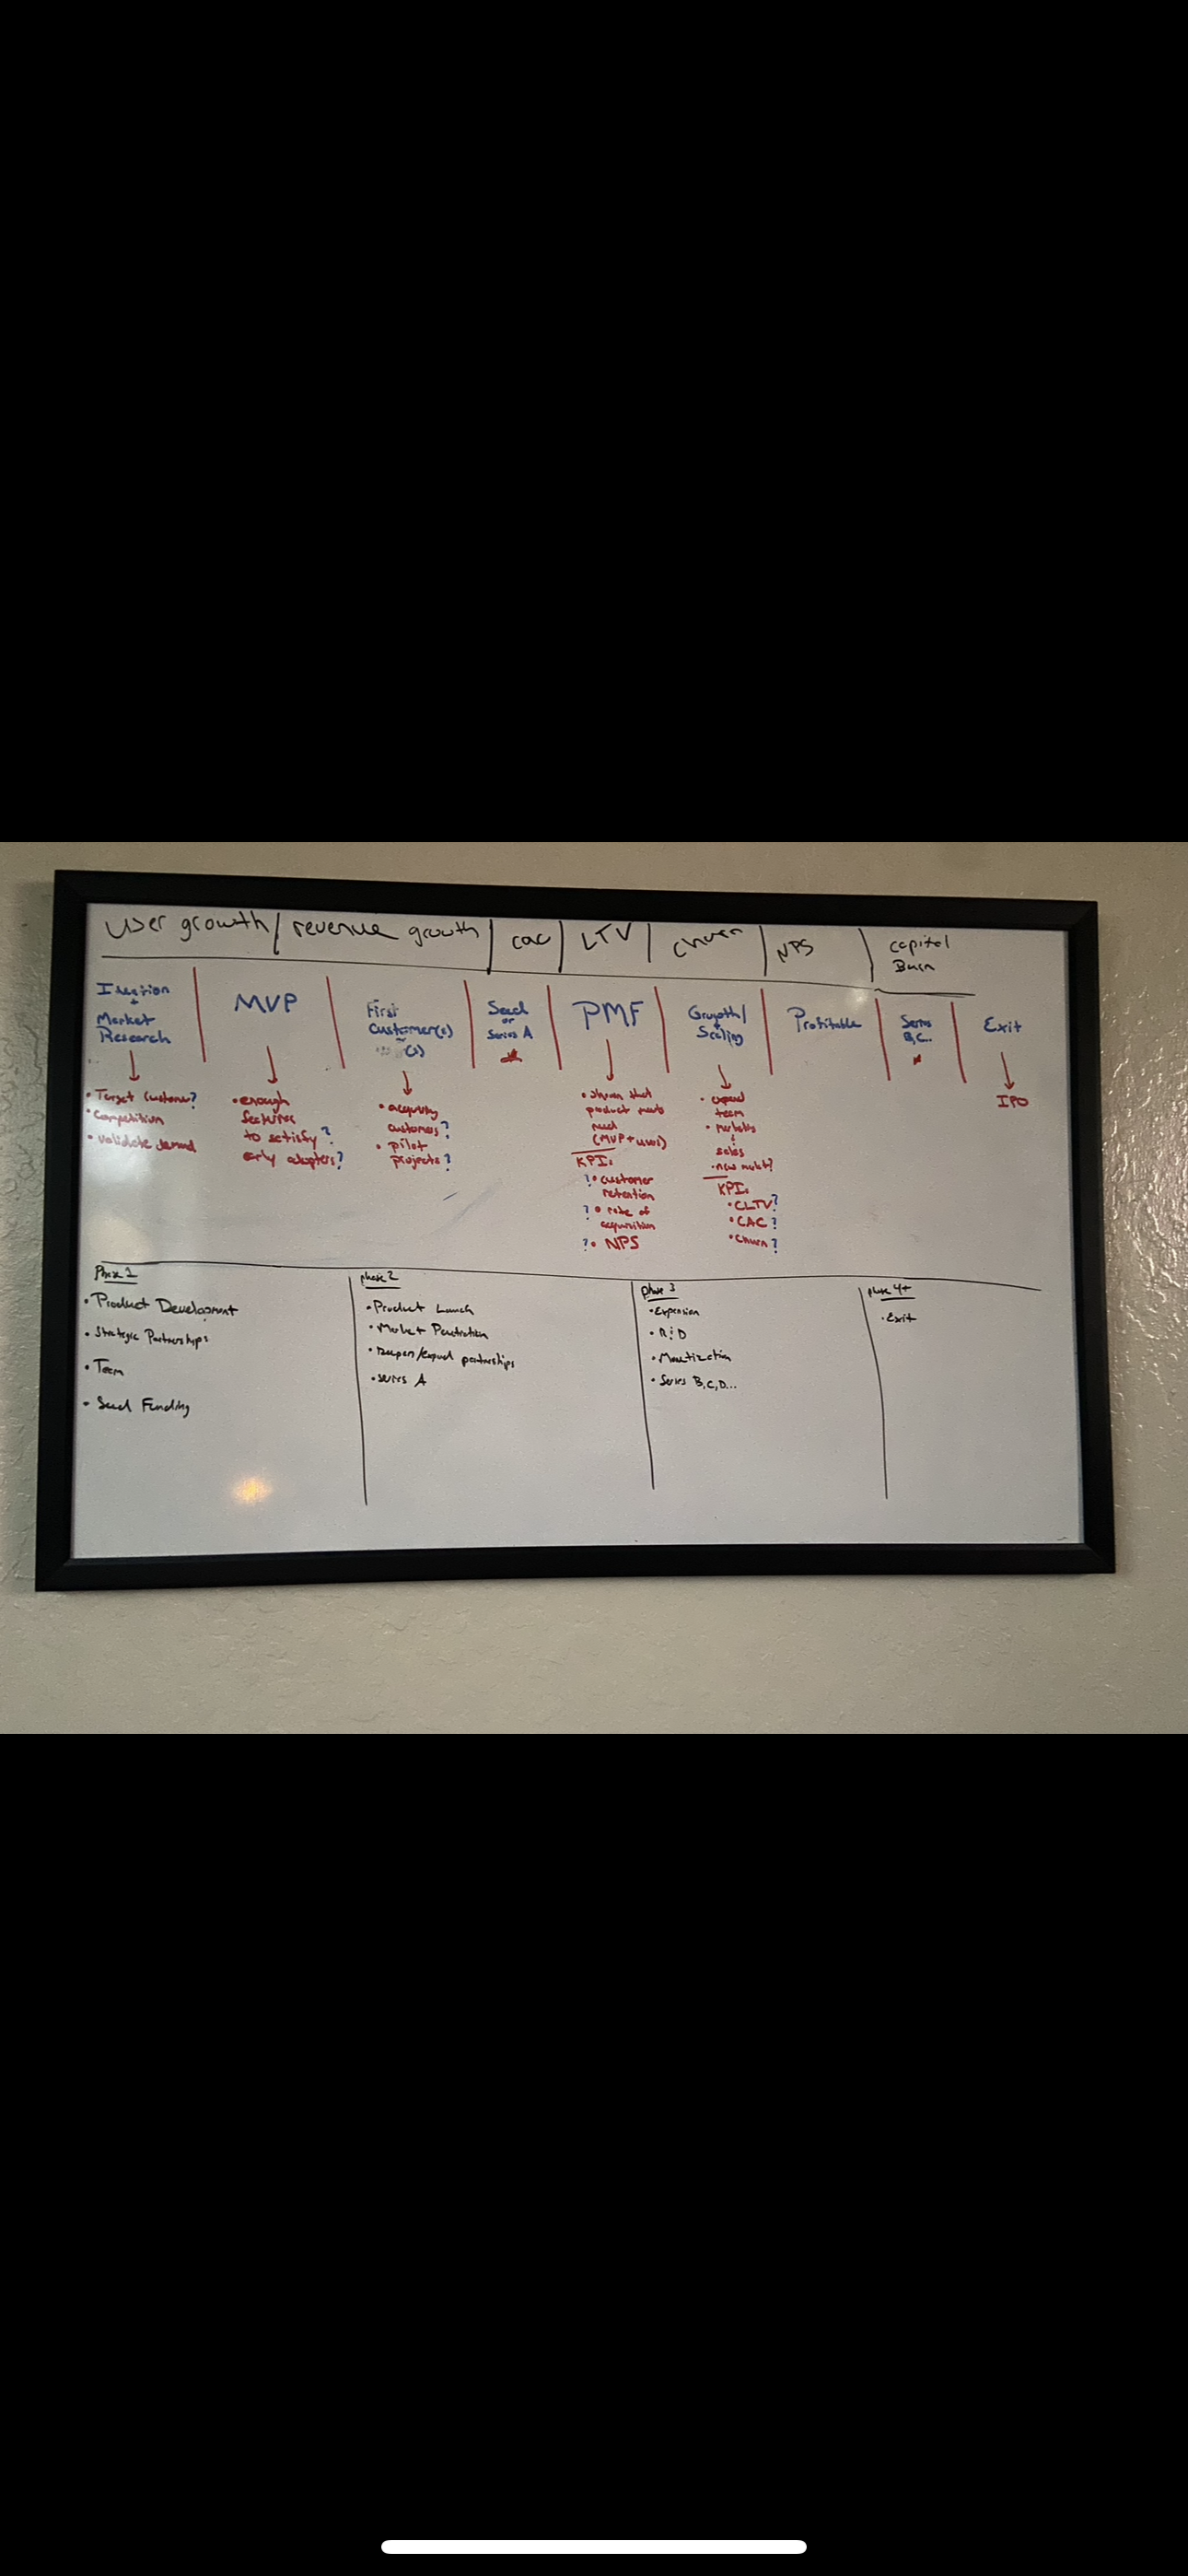 User growth / revenue growth | CAC | LTV | Churn | NPS | Capital
Burn
Ideation
+
Market
Research
• Target Customer?
• Competition
• Validate demand
MVP
• enough
features
to satisfy?
early adopters?
First
Customer(s)
(s)
• acquiring
customers?
• pilot
projects?
Seed
or
Series A
PMF
• shown that
product meets
need
(MVP + users)
KPI:
? • customer
retention
? • rate of
acquisition
? • NPS
Growth/
Scaling
• expand
team
•
sales
• new market?
KPI:
• CLTV?
• CAC?
• Churn?
Profitable
Series
B,C..
Exit
IPO
Phase 1
• Product Development
• Strategic Partnerships
• Team
• Seed Funding
phase 2
• Product Launch
• Market Penetration
• Deepen/expand partnerships
• Series A
phase 3
• Expansion
• R&D
• Monetization
• Series B,C,D...
phase 4+
• Exit